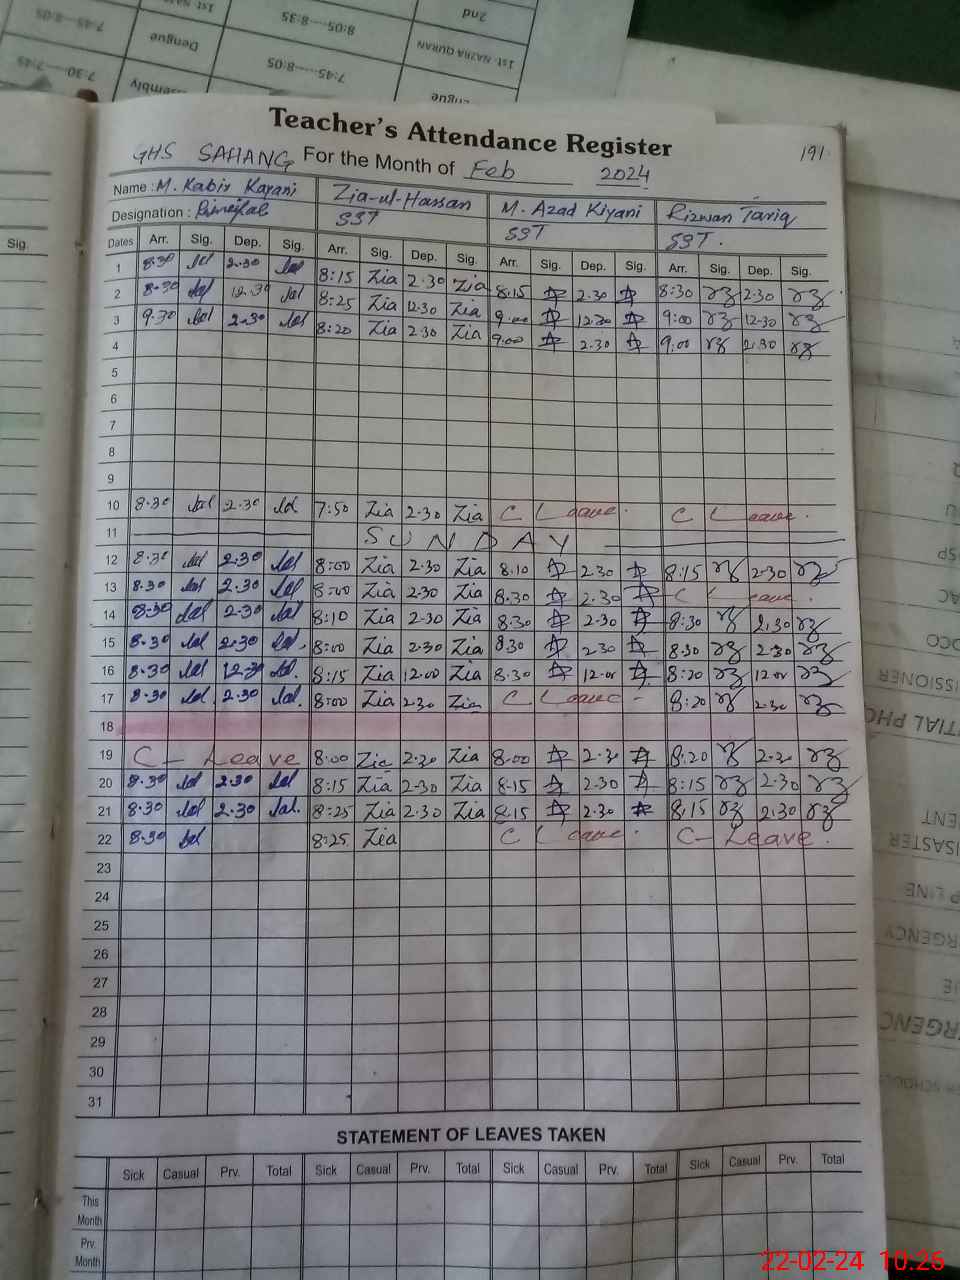 2nd
8:05----8:35
1st
7:45--8:05
1st NAZRA QURAN
7:45----8:05
Dengue
7:30--7:45
Teacher's Attendance Register
191
GHS SAHANG For the Month of Feb 2024
Name : M. Kabir Kayani Zia-ul-Hassan M. Azad Kiyani Rizwan Tariq
Designation : Principal SST SST SST.
Sig.
Dates Arr. Sig. Dep. Sig. Arr. Sig. Dep. Sig. Arr. Sig. Dep. Sig. Arr. Sig. Dep. Sig.
1 8.30 2.30 8:15 Zia 2.30 Zia 8.15 2.30 8:30 2.30
2 8.30 12.30 8:25 Zia 12.30 Zia 9.00 12.30 9:00 12.30
3 9.30 2.30 8:20 Zia 2.30 Zia 9.00 2.30 9:00 2.30
4
5
6
7
8
9
10 8.30 2.30 7:50 Zia 2.30 Zia C Leave. C Leave.
11 SUNDAY
12 8.30 2.30 8:00 Zia 2.30 Zia 8.10 2.30 8:15 2.30
13 8.30 2.30 8:00 Zia 2.30 Zia 8.30 2.30 C Leave.
14 8.30 2.30 8:10 Zia 2.30 Zia 8.30 2.30 8:30 2.30
15 8.30 2.30 8:00 Zia 2.30 Zia 8.30 2.30 8.30 2.30
16 8.30 12.30 8:15 Zia 12.00 Zia 8.30 12.00 8:20 12.00
17 8.30 2.30 8:00 Zia 2.30 Zia C Leave - 8:20 2.30
18
19 C- Leave 8:00 Zia 2.30 Zia 8.00 2.30 8.20 2.30
20 8.30 2.30 8:15 Zia 2.30 Zia 8.15 2.30 8:15 2.30
21 8.30 2.30 8:25 Zia 2.30 Zia 8.15 2.30 8.15 2.30
22 8.30 8:25 Zia C Leave. C-Leave.
23
24
25
26
27
28
29
30
31
STATEMENT OF LEAVES TAKEN
Sick Casual Prv. Total Sick Casual Prv. Total Sick Casual Prv. Total Sick Casual Prv. Total
This Month
Prv. Month
22-02-24 10:26